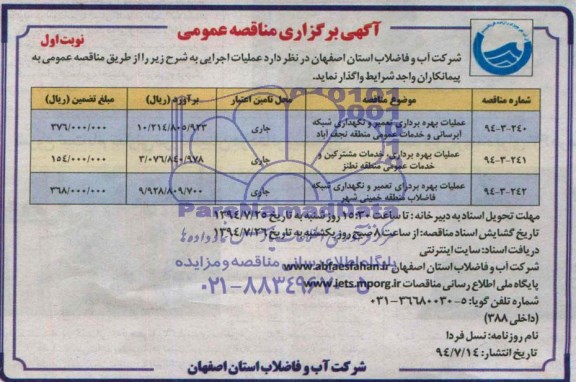 آگهی برگزاری مناقصه عمومی
نوبت اول
شرکت آب و فاضلاب استان اصفهان در نظر دارد عملیات اجرایی به شرح زیر را از طریق مناقصه عمومی به
پیمانکاران واجد شرایط واگذار نماید.
شماره مناقصه موضوع مناقصه محل تامین اعتبار برآورد (ریال) مبلغ تضمین (ریال)
۹۴-۳-۲۴۰ عملیات بهره برداری تعمیر و نگهداری شبکه آبرسانی و خدمات عمومی منطقه نجف آباد جاری ۱۰/۲۱۴/۸۰۵/۹۲۳ ۳۷۶/۰۰۰/۰۰۰
۹۴-۳-۲۴۱ عملیات بهره برداری، خدمات مشترکین و خدمات عمومی منطقه نطنز جاری ۳/۰۷۶/۸۴۰/۹۷۸ ۱۵۴/۰۰۰/۰۰۰
۹۴-۳-۲۴۲ عملیات بهره برداری تعمیر و نگهداری شبکه فاضلاب منطقه خمینی شهر جاری ۹/۹۲۸/۸۰۹/۷۰۰ ۳۶۸/۰۰۰/۰۰۰
مهلت تحویل اسناد به دبیرخانه: تا ساعت ۱۵:۳۰ روز شنبه به تاریخ ۱۳۹۴/۷/۲۵
تاریخ گشایش اسناد مناقصه: از ساعت ۸ صبح روز یکشنبه به تاریخ ۱۳۹۴/۷/۲۶
دریافت اسناد: سایت اینترنتی
شرکت آب و فاضلاب استان اصفهان www.abfaesfahan.ir
پایگاه ملی اطلاع رسانی مناقصات www.iets.mporg.ir
شماره تلفن گویا: ۵-۳۶۶۸۰۰۳۰-۰۳۱
(داخلی ۳۸۸)
نام روزنامه: نسل فردا
تاریخ انتشار: ۹۴/۷/۱۴
شرکت آب و فاضلاب استان اصفهان
ParsNamadData
پایگاه اطلاع رسانی مناقصه و مزایده
۰۲۱-۸۸۳۴۹۶۷۰-۵